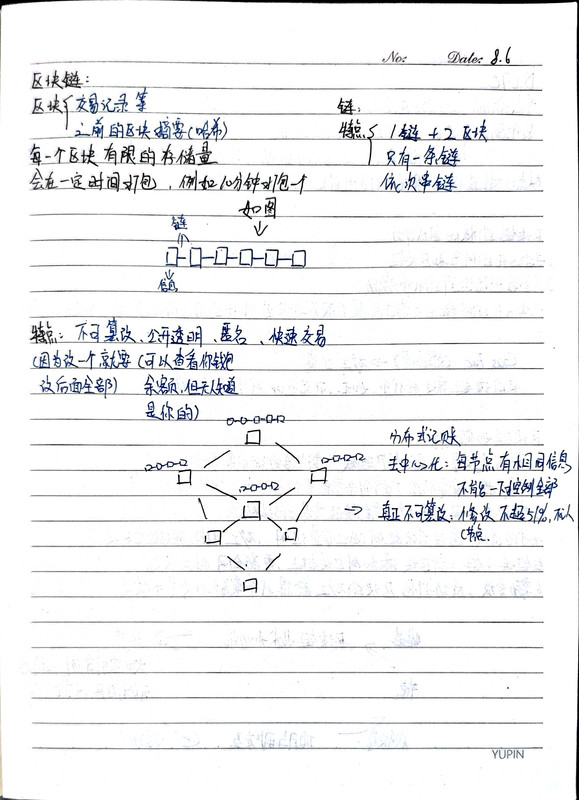 No: Date: 8.6
区块链:
区块{交易记录等
之前的区块摘要(哈希)
每一个区块有限的存储量
会在一定时间打包, 例如10分钟打包一个
链:
特点{1链+2区块
只有一条链
依次串链
如图
链
信息
特点: 不可篡改、公开透明、匿名、快速交易
(因为改一个就要改后面全部)
(可以查看你钱包余额,但无人知道是你的)
分布式记账
去中心化: 每节点有相同信息
不能一对控制全部
→ 真正不可篡改: 修改不超51%, 不认
(节点
YUPIN